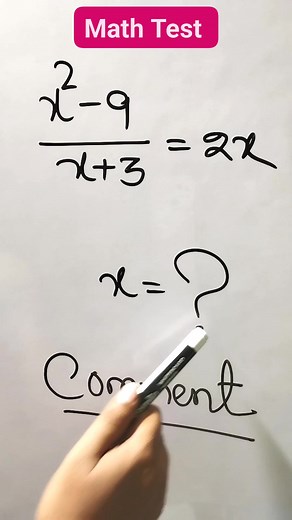 Math Test
x² - 9
x + 3
= 2x
x = ?
Comment